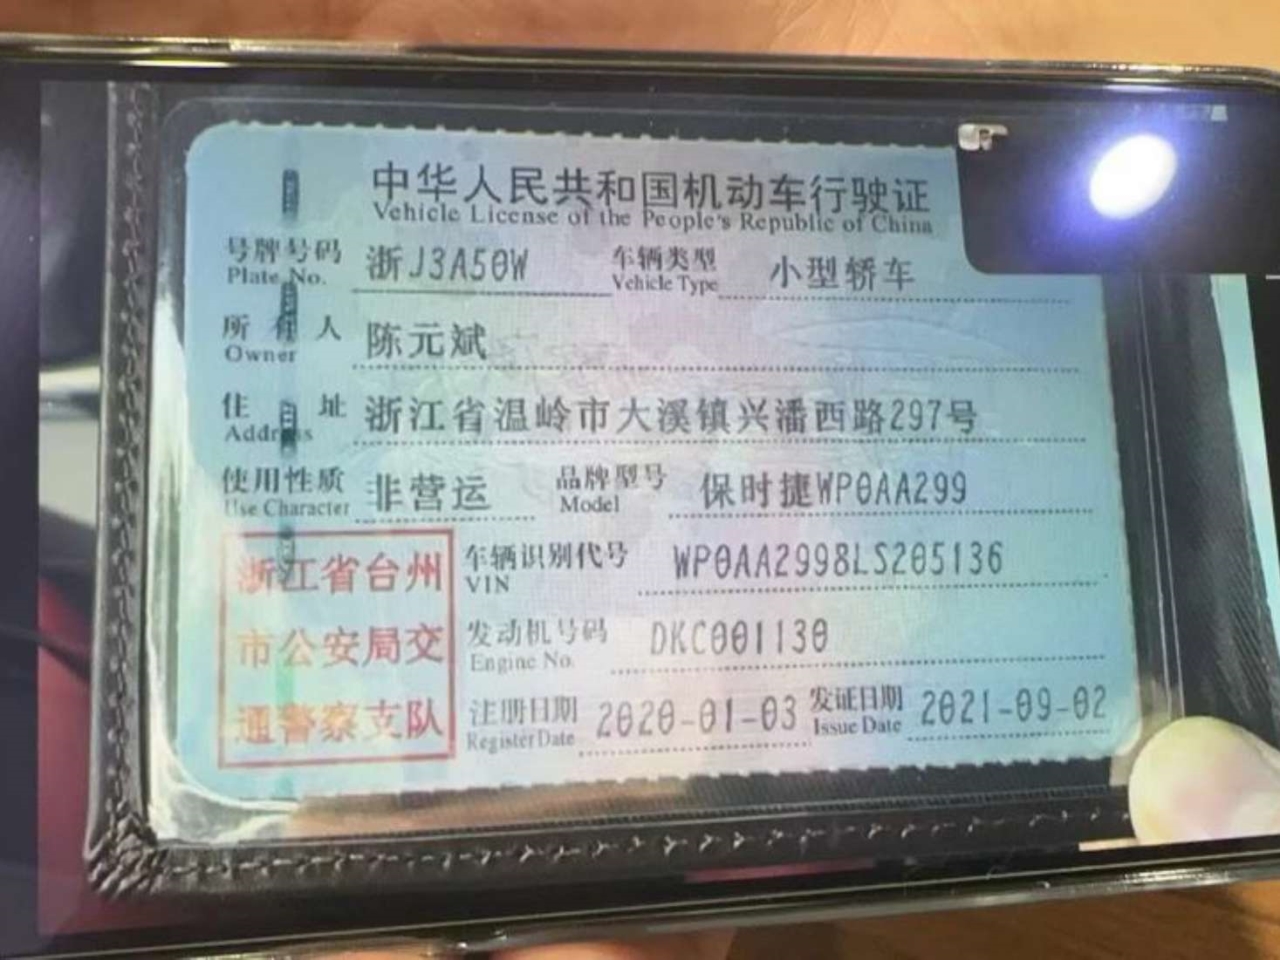 中华人民共和国机动车行驶证
Vehicle License of the People's Republic of China
号牌号码 浙J3A50W 车辆类型 小型轿车
Plate No. Vehicle Type
所有人 陈元斌
Owner
住址 浙江省温岭市大溪镇兴潘西路297号
Address
使用性质 非营运 品牌型号 保时捷WP0AA299
Use Character Model
浙江省台州 车辆识别代号 WP0AA2998LS205136
VIN
市公安局交 发动机号码 DKC001130
Engine No.
通警察支队 注册日期 2020-01-03 发证日期 2021-09-02
Register Date Issue Date